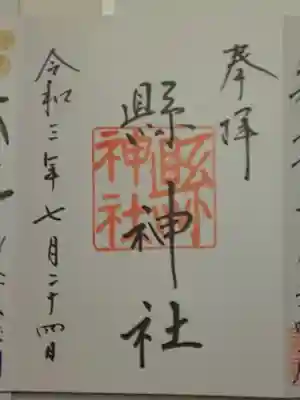 奉拝
縣神社
令和三年七月二十四日
縣神社